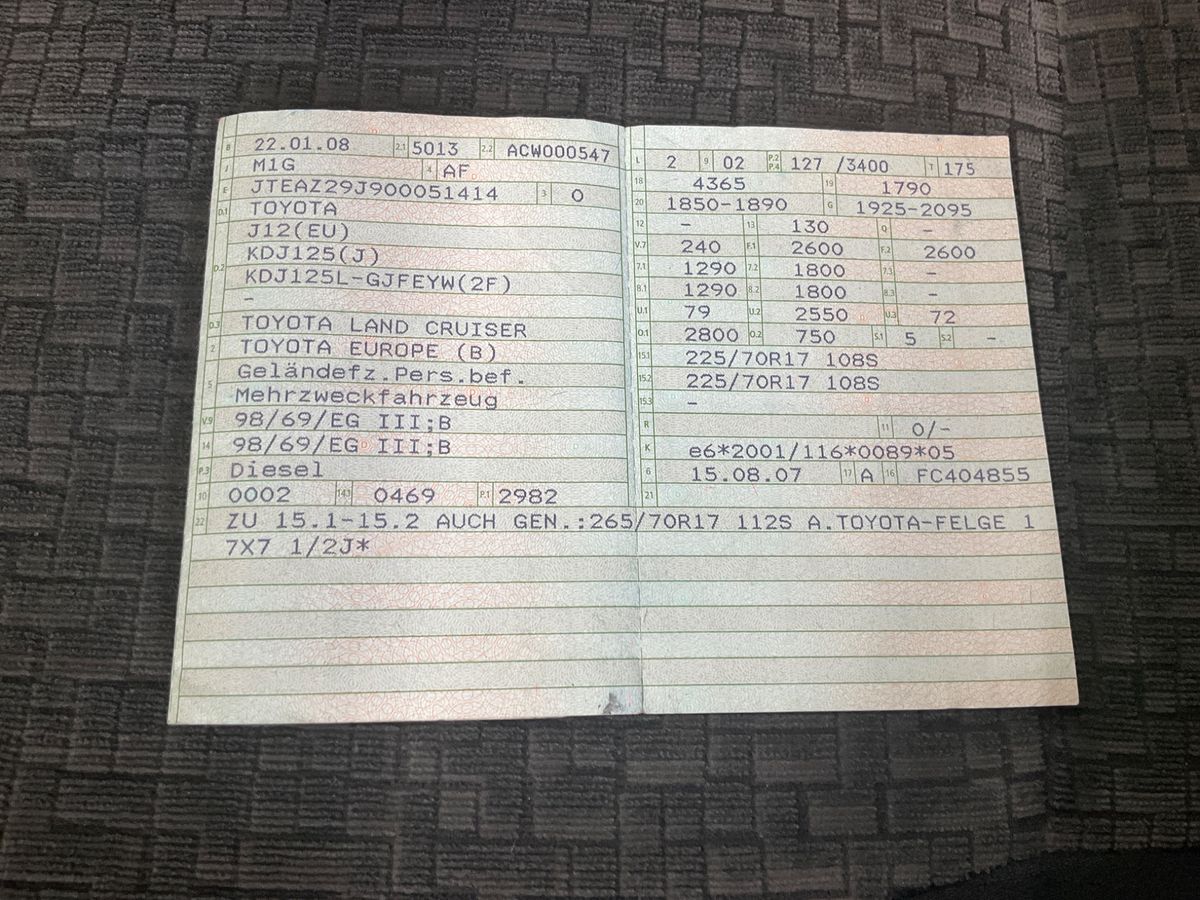 B 22.01.08 2.1 5013 2.2 ACW000547
J M1G 4 AF
E JTEAZ29J900051414 3 0
D.1 TOYOTA
J12(EU)
D.2 KDJ125(J)
KDJ125L-GJFEYW(2F)
-
D.3 TOYOTA LAND CRUISER
2 TOYOTA EUROPE (B)
5 Geländefz.Pers.bef.
Mehrzweckfahrzeug
V.9 98/69/EG III;B
14 98/69/EG III;B
P.3 Diesel
10 0002 14.1 0469 P.1 2982
L 2 9 02 P.2 P.4 127 /3400 T 175
18 4365 19 1790
20 1850-1890 G 1925-2095
12 - 13 130 Q -
V.7 240 F.1 2600 F.2 2600
7.1 1290 7.2 1800 7.3 -
8.1 1290 8.2 1800 8.3 -
U.1 79 U.2 2550 U.3 72
O.1 2800 O.2 750 S.1 5 S.2 -
15.1 225/70R17 108S
15.2 225/70R17 108S
15.3 -
R 11 0/-
K e6*2001/116*0089*05
6 15.08.07 17 A 16 FC404855
21
22 ZU 15.1-15.2 AUCH GEN.:265/70R17 112S A.TOYOTA-FELGE 1
7X7 1/2J*